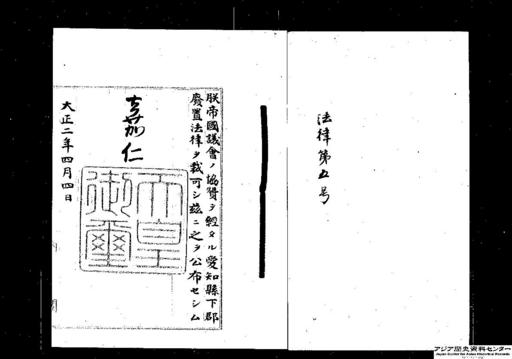 法律第五号
朕帝國議會ノ協賛ヲ經タル愛知縣下郡
廢置法律ヲ裁可シ茲ニ之ヲ公布セシム
嘉仁
天皇
御璽
大正二年四月四日
アジア歴史資料センター
Japan Center for Asian Historical Records